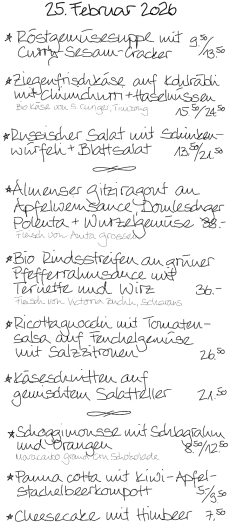 25. Februar 2026
* Röstgemüsesuppe mit 9.50/13.50
Curry-Sesam-Cracker
* Ziegenfrischkäse auf Kohlrabi
mit Chimichurri + Haselnüssen
Bio Käse von S. 15.50/24.50
* Russischer Salat mit Schinken-
würfeli + Blattsalat 13.50/21.50
* Almenser Gitziragout an
Apfelweinsauce, Domleschger
Polenta + Wurzelgemüse 38.-
Fleisch von Anita
* Bio Rindsstreifen an grüner
Pfefferrahmsauce mit
Ternette und Wirz 36.-
Fleisch von Victoria
* Ricottagnocchi mit Tomaten-
salsa auf Fenchelgemüse
mit Salzzitronen 26.50
* Käseschnitten auf
gemischten Salatteller 21.50
* Schoggimousse mit Schlagrahm
und Orangen 8.50/12.50
Schokolade
* Panna cotta mit Kiwi-Apfel-
stachelbeerkompott 5.-/9.50
* Cheesecake mit Himbeer 7.50